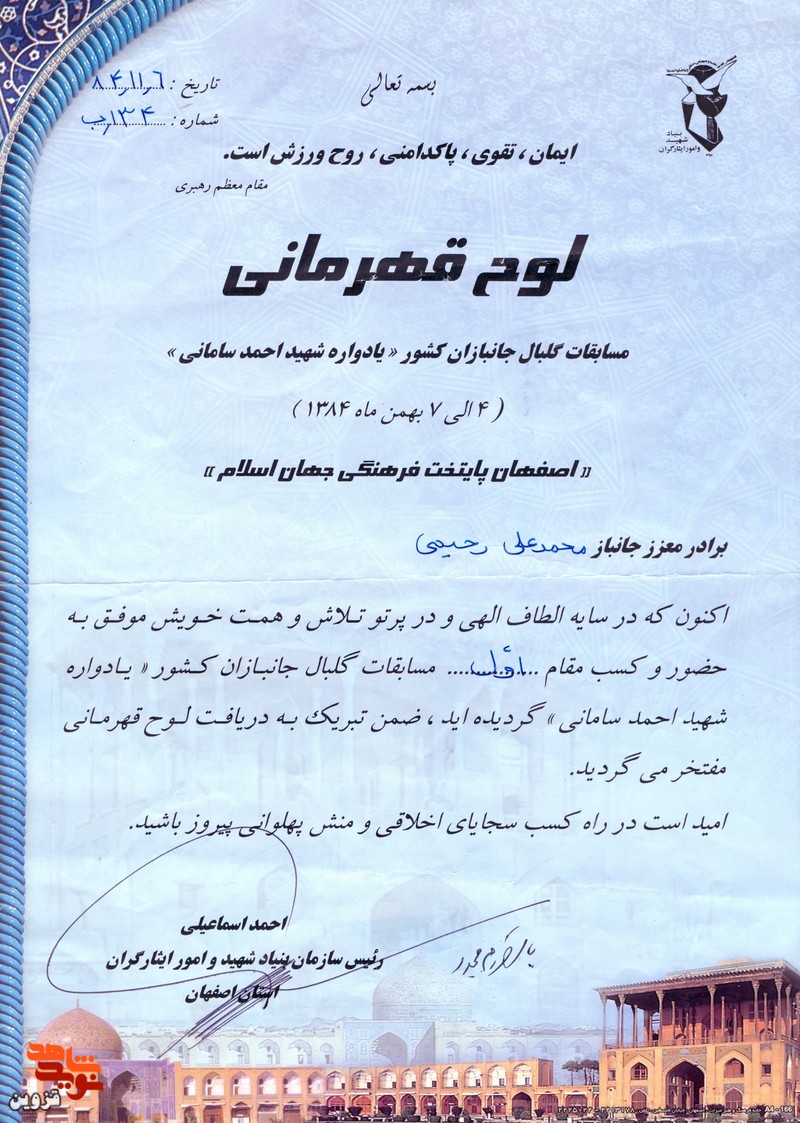 بسمه تعالی
تاریخ : ۸۴,۱۱,۶
شماره : ۱۳۴رب
بنیاد
شهید
و امور ایثارگران
ایمان ، تقوی ، پاکدامنی ، روح ورزش است.
مقام معظم رهبری
لوح قهرمانی
مسابقات گلبال جانبازان کشور « یادواره شهید احمد سامانی »
( ۴ الی ۷ بهمن ماه ۱۳۸۴ )
« اصفهان پایتخت فرهنگی جهان اسلام »
برادر معزز جانباز محمدعلی رحیمی
اکنون که در سایه الطاف الهی و در پرتو تلاش و همت خویش موفق به
حضور و کسب مقام ...اوّل.... مسابقات گلبال جانبازان کشور « یادواره
شهید احمد سامانی » گردیده اید ، ضمن تبریک به دریافت لوح قهرمانی
مفتخر می گردید.
امید است در راه کسب سجایای اخلاقی و منش پهلوانی پیروز باشید.
احمد اسماعیلی
رئیس سازمان بنیاد شهید و امور ایثارگران
استان اصفهان
نوید شاهد
قزوین
A4 - 166